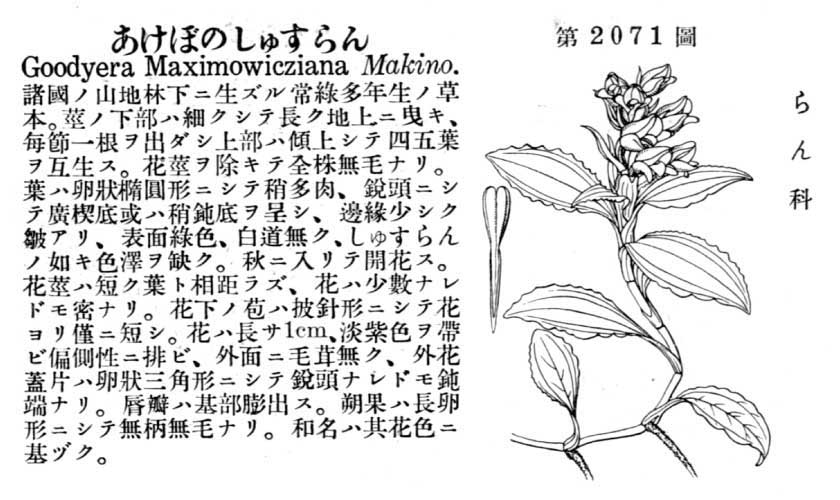 あけぼのしゅすらん
Goodyera Maximowicziana Makino.
諸國ノ山地林下ニ生ズル常綠多年生ノ草
本。莖ノ下部ハ細クシテ長ク地上ニ曳キ、
每節一根ヲ出ダシ上部ハ傾上シテ四五葉
ヲ互生ス。花莖ヲ除キテ全株無毛ナリ。
葉ハ卵狀橢圓形ニシテ稍多肉、銳頭ニシ
テ廣楔底或ハ稍鈍底ヲ呈シ、邊緣少シク
皺アリ、表面綠色、白道無ク、しゅすらん
ノ如キ色澤ヲ缺ク。秋ニ入リテ開花ス。
花莖ハ短ク葉ト相距ラズ、花ハ少數ナレ
ドモ密ナリ。花下ノ苞ハ披針形ニシテ花
ヨリ僅ニ短シ。花ハ長サ1cm、淡紫色ヲ帶
ビ偏側性ニ排ビ、外面ニ毛茸無ク、外花
蓋片ハ卵狀三角形ニシテ銳頭ナレドモ鈍
端ナリ。脣瓣ハ基部膨出ス。朔果ハ長卵
形ニシテ無柄無毛ナリ。和名ハ其花色ニ
基ヅク。
第2071圖
らん科